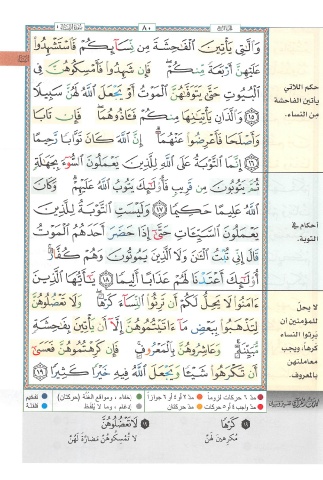 ٨٠
وَالَّٰتِي يَأْتِينَ الْفَاحِشَةَ مِن نِّسَائِكُمْ فَاسْتَشْهِدُوا
عَلَيْهِنَّ أَرْبَعَةً مِّنكُمْ فَإِن شَهِدُوا فَأَمْسِكُوهُنَّ فِي
الْبُيُوتِ حَتَّىٰ يَتَوَفَّاهُنَّ الْمَوْتُ أَوْ يَجْعَلَ اللَّهُ لَهُنَّ سَبِيلًا
١٥ وَاللَّذَانِ يَأْتِيَانِهَا مِنكُمْ فَآذُوهُمَا فَإِن تَابَا
وَأَصْلَحَا فَأَعْرِضُوا عَنْهُمَا إِنَّ اللَّهَ كَانَ تَوَّابًا رَّحِيمًا
١٦ إِنَّمَا التَّوْبَةُ عَلَى اللَّهِ لِلَّذِينَ يَعْمَلُونَ السُّوءَ بِجَهَالَةٍ
ثُمَّ يَتُوبُونَ مِن قَرِيبٍ فَأُولَٰئِكَ يَتُوبُ اللَّهُ عَلَيْهِمْ وَكَانَ
اللَّهُ عَلِيمًا حَكِيمًا ١٧ وَلَيْسَتِ التَّوْبَةُ لِلَّذِينَ
يَعْمَلُونَ السَّيِّئَاتِ حَتَّىٰ إِذَا حَضَرَ أَحَدَهُمُ الْمَوْتُ
قَالَ إِنِّي تُبْتُ الْآنَ وَلَا الَّذِينَ يَمُوتُونَ وَهُمْ كُفَّارٌ
أُولَٰئِكَ أَعْتَدْنَا لَهُمْ عَذَابًا أَلِيمًا ١٨ يَا أَيُّهَا الَّذِينَ
ءَامَنُوا لَا يَحِلُّ لَكُمْ أَن تَرِثُوا النِّسَاءَ كَرْهًا وَلَا تَعْضُلُوهُنَّ
لِتَذْهَبُوا بِبَعْضِ مَا ءَاتَيْتُمُوهُنَّ إِلَّا أَن يَأْتِينَ بِفَاحِشَةٍ
مُّبَيِّنَةٍ وَعَاشِرُوهُنَّ بِالْمَعْرُوفِ فَإِن كَرِهْتُمُوهُنَّ فَعَسَىٰ
أَن تَكْرَهُوا شَيْئًا وَيَجْعَلَ اللَّهُ فِيهِ خَيْرًا كَثِيرًا ١٩
حكم اللاتي
يأتين الفاحشة
من النساء.
أحكام في
التوبة.
لا يحلّ
للمؤمنين أن
يرثوا النساء
كرهاً، ويجب
معاملتهن
بالمعروف.
مدّ ٦ حركات لزوماً مدّ ٢ أو ٤ أو ٦ جوازاً إخفاء، ومواقع الغُنَّة (حركتان) تفخيم
مدّ واجب ٤ أو ٥ حركات مدّ حركتان إدغام، وما لا يُلفَظ قلقلة
كَرْهًا
مُكرِهين لهنّ
لَا تَعْضُلُوهُنَّ
لا تُمسكوهنّ مضارّة لهنّ